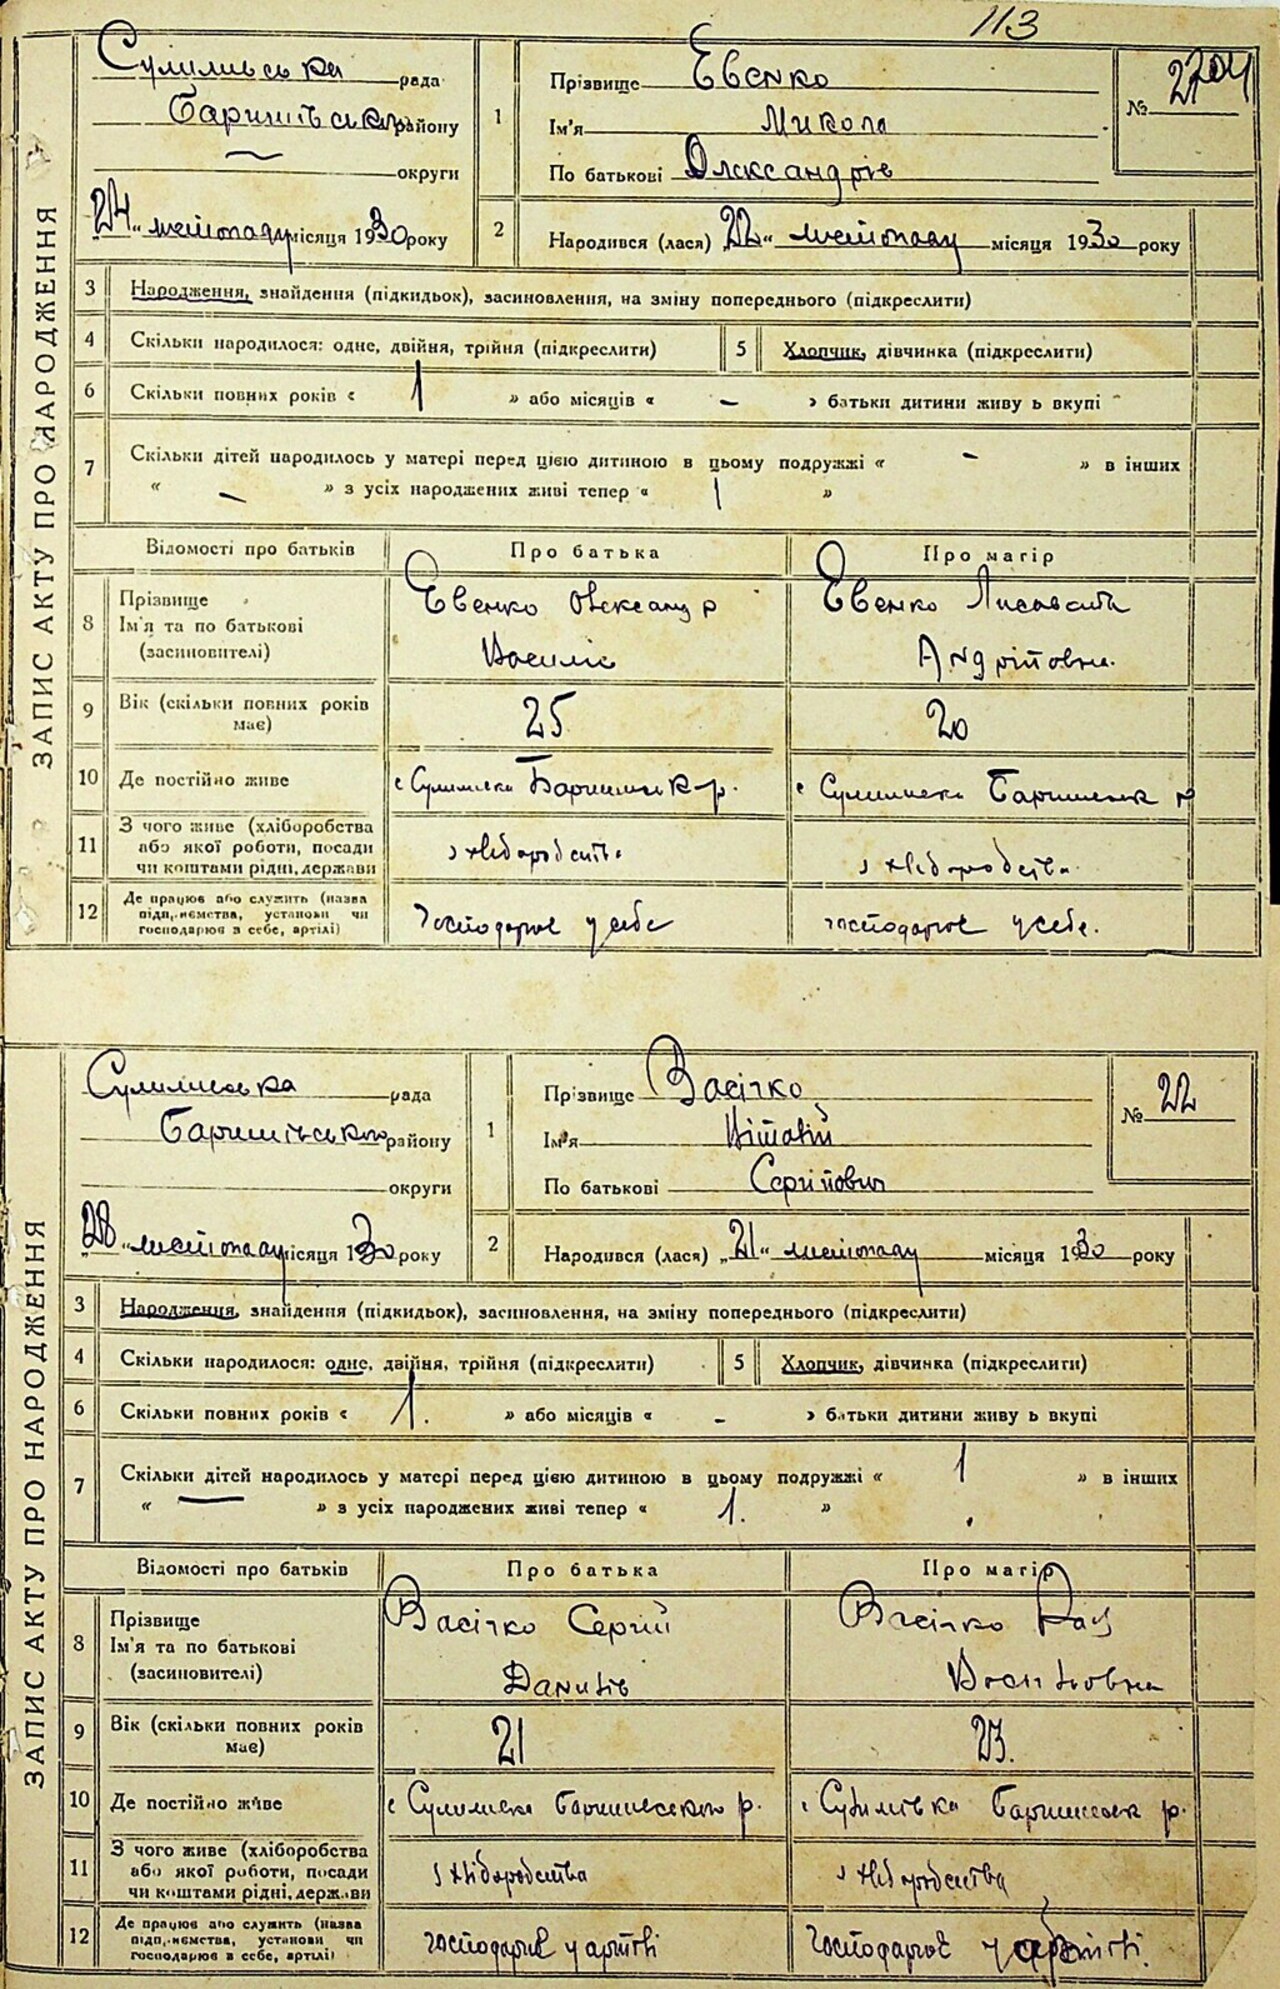 113
ЗАПИС АКТУ ПРО НАРОДЖЕННЯ
Сулимивська рада
Баришівського району
округи
24 листопаду місяця 1930 року
1
Прізвище Евенко
Ім'я Микола
По батькові Олександрів
№
2
Народився (лася) „22" листопаду місяця 1930 року
3 Народження, знайдення (підкидьок), засиновлення, на зміну попереднього (підкреслити)
4 Скільки народилося: одне, двійня, трійня (підкреслити) 5 Хлопчик, дівчинка (підкреслити)
6 Скільки повних років « 1 » або місяців « – » батьки дитини живуть вкупі
7 Скільки дітей народилось у матері перед цією дитиною в цьому подружжі « – » в інших
« – » з усіх народжених живі тепер « 1 »
Відомості про батьків Про батька Про матір
8 Прізвище Ім'я та по батькові (засиновителі)
Евенко Олександр
Василів
Евенко Лисавета
Андріївна.
9 Вік (скільки повних років має) 25 20
10 Де постійно живе с Сулимівка р. с Сулимівка р
11 З чого живе (хліборобства або якої роботи, посади чи коштами рідні, держави
з хліборобства з хліборобства
12 Де працює або служить (назва підприємства, установи чи господарює в себе, артілі)
господарює у себе господарює у себе.
ЗАПИС АКТУ ПРО НАРОДЖЕННЯ
Сулимивська рада
Баришівського району
округи
28 „ листопаду місяця 1930 року
1
Прізвище Васічко
Ім'я Вітавій
По батькові Сергійович
№ 22
2
Народився (лася) „21" листопаду місяця 1930 року
3 Народження, знайдення (підкидьок), засиновлення, на зміну попереднього (підкреслити)
4 Скільки народилося: одне, двійня, трійня (підкреслити) 5 Хлопчик, дівчинка (підкреслити)
6 Скільки повних років « 1. » або місяців « – » батьки дитини живуть вкупі
7 Скільки дітей народилось у матері перед цією дитиною в цьому подружжі « 1 » в інших
« — » з усіх народжених живі тепер « 1. »
Відомості про батьків Про батька Про матір
8 Прізвище Ім'я та по батькові (засиновителі)
Васічко Сергій
Данилів
Васічко
Василівна
9 Вік (скільки повних років має) 21 23.
10 Де постійно живе с Сулимівка р. с Сулимівка р.
11 З чого живе (хліборобства або якої роботи, посади чи коштами рідні, держави
з хліборобства з хліборобства
12 Де працює або служить (назва підприємства, установи чи господарює в себе, артілі)
господарює у артілі господарює у артілі.